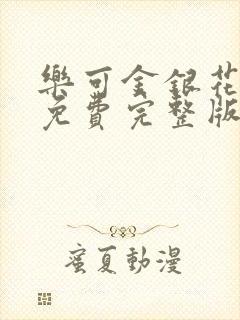 樂可金銀花
免費完整版
蜜夏動漫